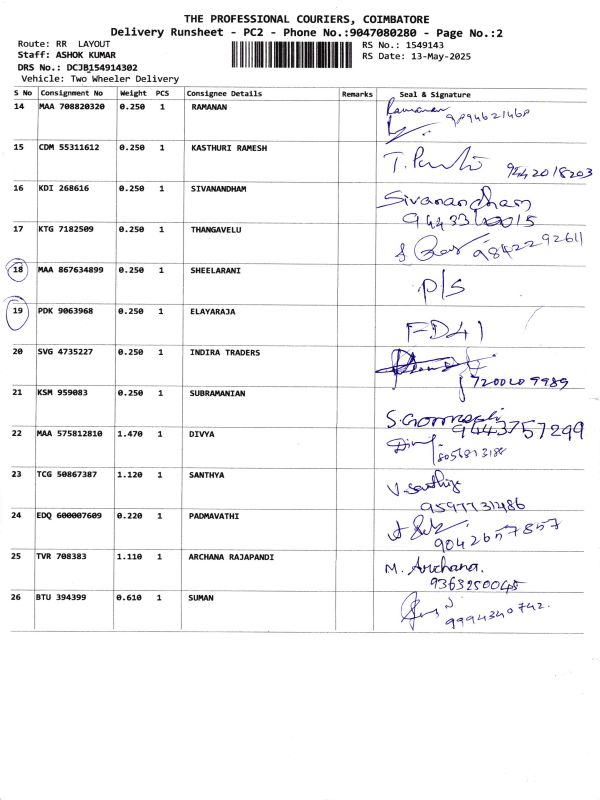 THE PROFESSIONAL COURIERS, COIMBATORE
Delivery Runsheet - PC2 - Phone No.:9047080280 - Page No.:2
Route: RR LAYOUT
RS No.: 1549143
Staff: ASHOK KUMAR
RS Date: 13-May-2025
DRS No.: DCJB154914302
Vehicle: Two Wheeler Delivery
S No Consignment No Weight PCS Consignee Details Remarks Seal & Signature
14 MAA 708820320 0.250 1 RAMANAN Ramanan
9894621468
15 CDM 55311612 0.250 1 KASTHURI RAMESH
9442018203
16 KDI 268616 0.250 1 SIVANANDHAM Sivanandham
17 KTG 7182509 0.250 1 THANGAVELU 9842292611
18 MAA 867634899 0.250 1 SHEELARANI P/S
19 PDK 9063968 0.250 1 ELAYARAJA FD41
20 SVG 4735227 0.250 1 INDIRA TRADERS
7200209989
21 KSM 959083 0.250 1 SUBRAMANIAN
9443757299
22 MAA 575812810 1.470 1 DIVYA
23 TCG 50867387 1.120 1 SANTHYA
9597731486
24 EDQ 600007609 0.220 1 PADMAVATHI
9042657857
25 TVR 708383 1.110 1 ARCHANA RAJAPANDI M. Archana.
9363250045
26 BTU 394399 0.610 1 SUMAN
9994340742.